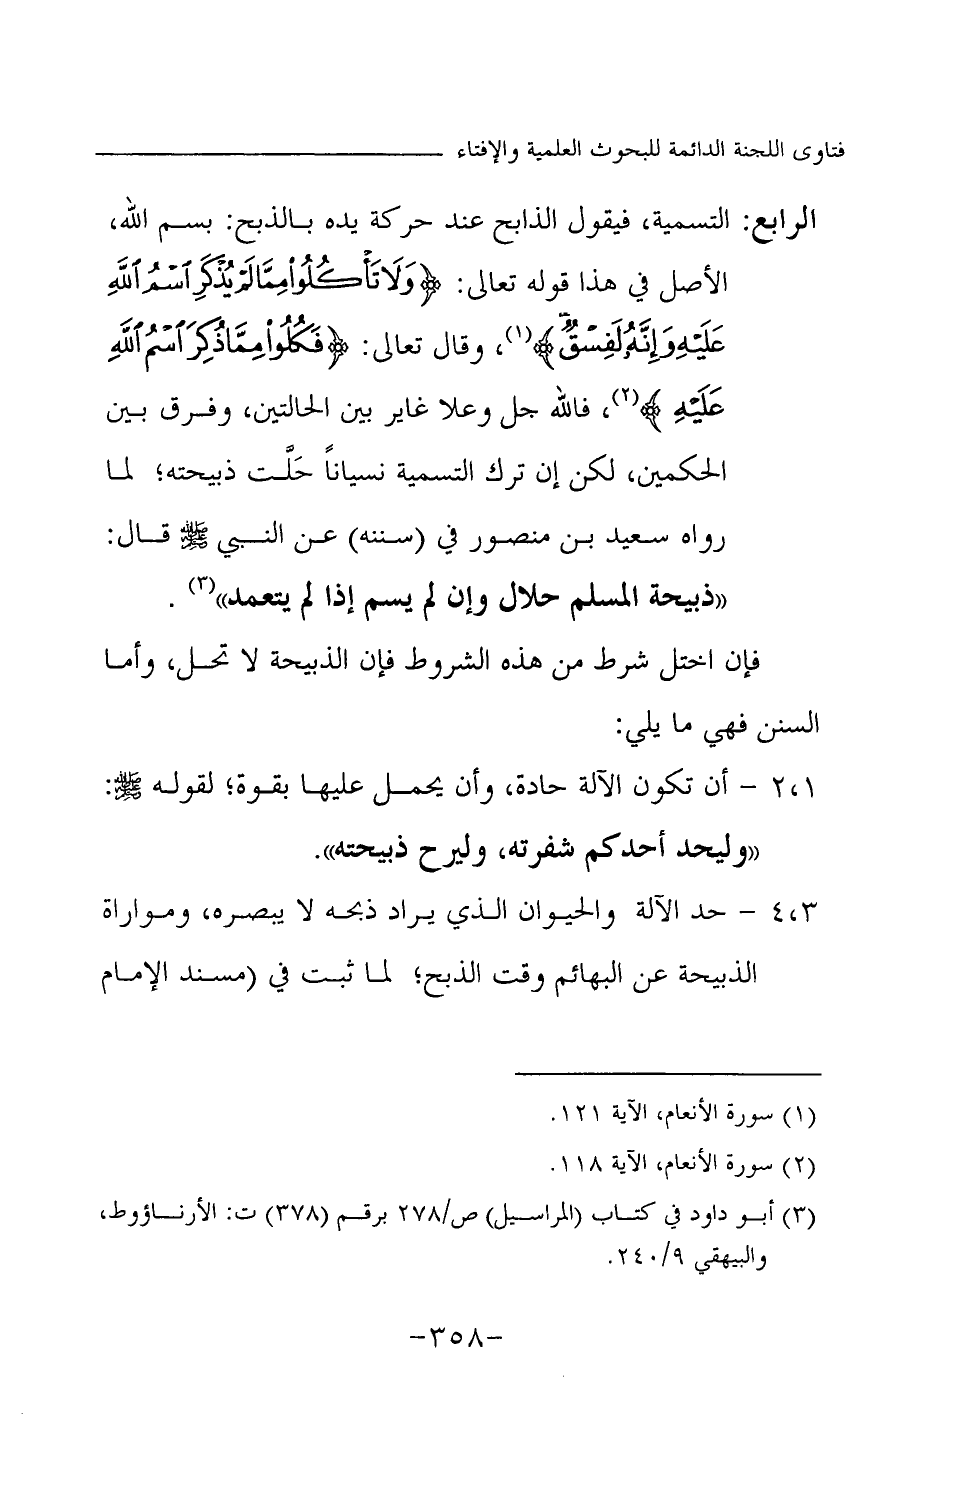 فتاوى اللجنة الدائمة للبحوث العلمية والإفتاء
الرابع: التسمية، فيقول الذابح عند حركة يده بالذبح: بسم الله،
الأصل في هذا قوله تعالى: ﴿وَلَا تَأۡكُلُواْ مِمَّا لَمۡ يُذۡكَرِ ٱسۡمُ ٱللَّهِ
عَلَيۡهِ وَإِنَّهُۥ لَفِسۡقٞۗ﴾(١)، وقال تعالى: ﴿فَكُلُواْ مِمَّا ذُكِرَ ٱسۡمُ ٱللَّهِ
عَلَيۡهِ﴾(٢)، فالله جل وعلا غاير بين الحالتين، وفرق بين
الحكمين، لكن إن ترك التسمية نسياناً حَلَّت ذبيحته؛ لما
رواه سعيد بن منصور في (سننه) عن النبي ﷺ قال:
«ذبيحة المسلم حلال وإن لم يسم إذا لم يتعمد»(٣) .
فإن اختل شرط من هذه الشروط فإن الذبيحة لا تحل، وأما
السنن فهي ما يلي:
٢،١ - أن تكون الآلة حادة، وأن يحمل عليها بقوة؛ لقوله ﷺ:
«وليحد أحدكم شفرته، وليرح ذبيحته».
٤،٣ - حد الآلة والحيوان الذي يراد ذبحه لا يبصره، ومواراة
الذبيحة عن البهائم وقت الذبح؛ لما ثبت في (مسند الإمام
(١) سورة الأنعام، الآية ١٢١.
(٢) سورة الأنعام، الآية ١١٨.
(٣) أبو داود في كتاب (المراسيل) ص/٢٧٨ برقم (٣٧٨) ت: الأرناؤوط،
والبيهقي ٢٤٠/٩.
-٣٥٨-